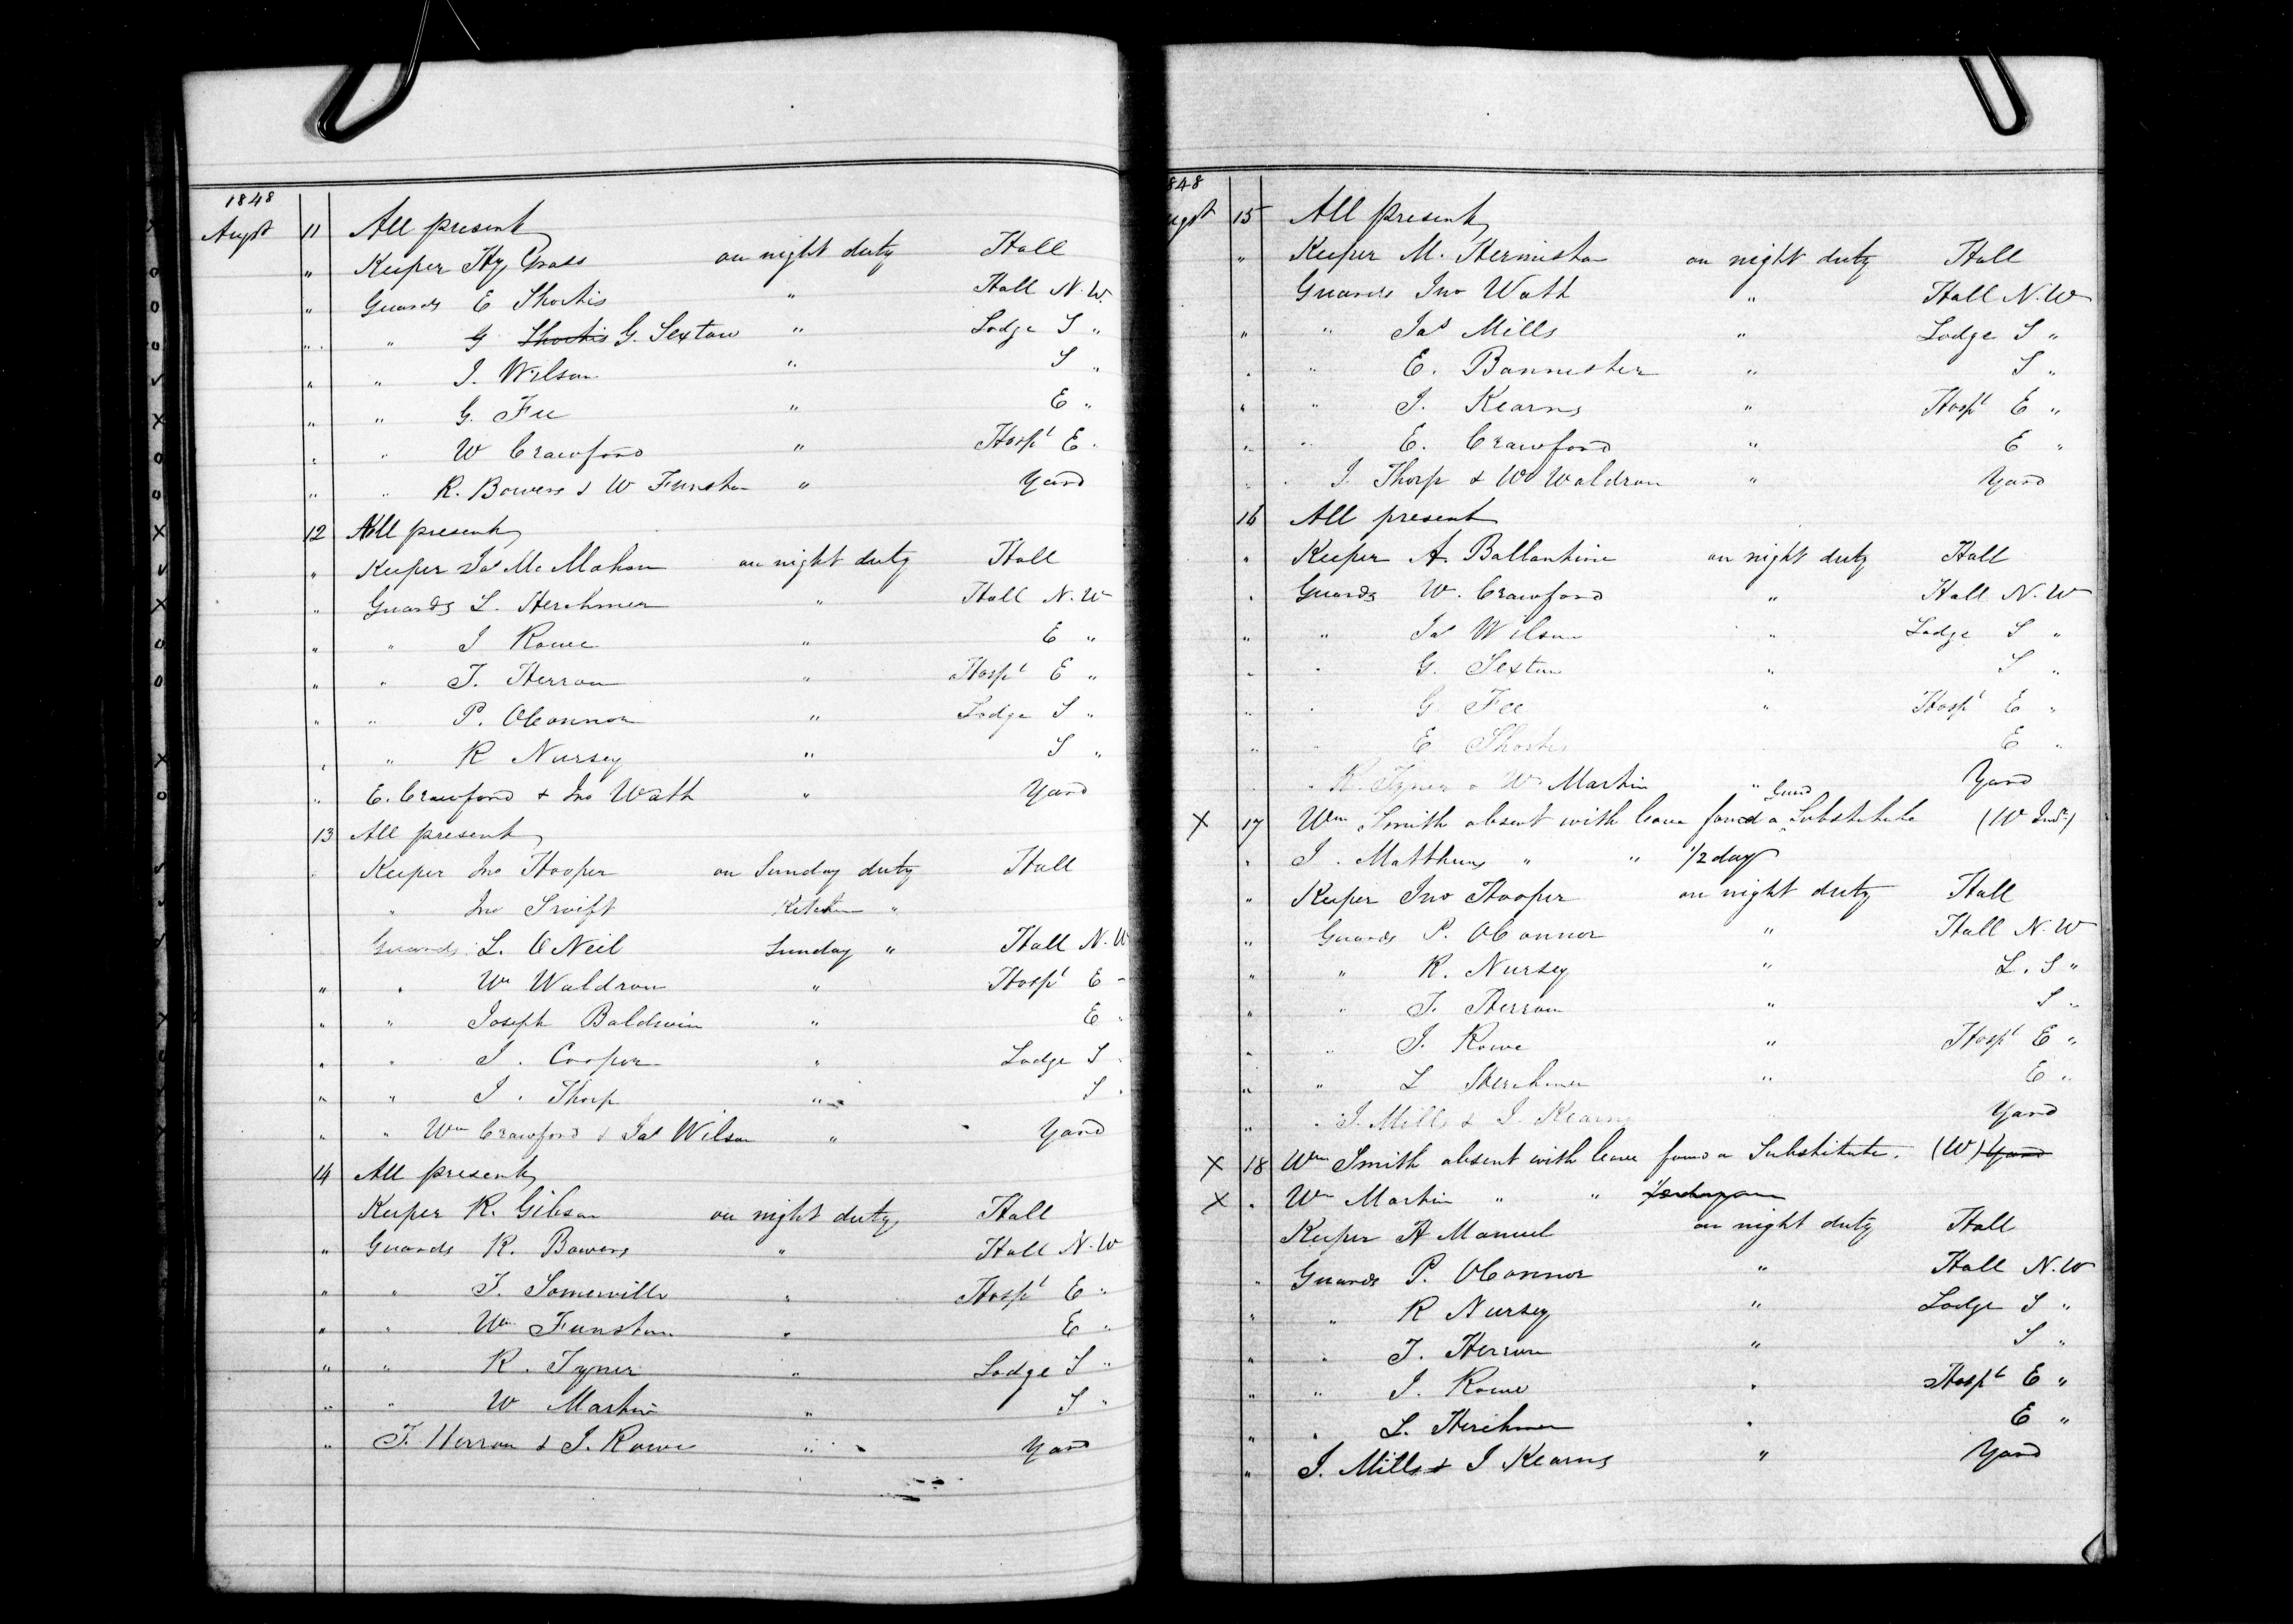 1848
Augst 11 All present
" Keeper Hy Grass on night duty Hall
" Guards E Shortis " Hall N.W.
" " G ~~Shortis~~ G. Sexton " Lodge S "
" " J. Wilson " S "
" " G. Fee " E "
" " W Crawford " Hospl E "
" " R. Bowers & W Funston " Yard
12 All present
" Keeper Jas McMahon on night duty Hall
" Guards L. Herchmer " Hall N.W
" " J Rowe " E "
" " T. Herron " Hospl E "
" " P. OConnor " Lodge S "
" " R Nursey " S "
" E. Crawford & Jno Wath " Yard
13 All present
" Keeper Jno Hooper on Sunday duty Hall
" Jno Swift Kitchen "
Guards L. ONeil Sunday " Hall N.W
" " Wm Waldron " Hospl E "
" " Joseph Baldwin " E "
" " J. Cooper " Lodge S "
" " J. Thorp " S "
" " Wm Crawford & Jas Wilson " Yard
14 All present
Keeper R. Gibson on night duty Hall
" Guards R. Bowers " Hall N.W
" " T. Somerville " Hospl E "
" " Wm Funston " E "
" " R. Tyner " Lodge S "
" " W Martin " S "
" T. Herron & J. Rowe " Yard
848
ugst 15 All present
" Keeper M. Hermiston on night duty Hall
Guards Jno Wath " Hall N.W
" " Jas Mills " Lodge S "
" " E. Bannister " S "
" " J. Kearns " Hospl E "
" " E. Crawford " E "
" " J. Thorp & W Waldron " Yard
16 All present
" Keeper A. Ballantine on night duty Hall
" Guards W. Crawford " Hall N.W
" " Jas Wilson " Lodge S "
" " G. Sexton " S "
" " G Fee " Hospl E "
" " E Shortis E "
" R. Tyner & W Martin " Yard
X 17 Wm Smith absent with leave found a Guard Substitute (W )
" J. Matthews " " 1/2 day
" Keeper Jno Hooper on night duty Hall
" Guards P. OConnor " Hall N.W
" " R. Nursey " L. S "
" " T. Herron " S "
" " J. Rowe " Hospl E "
" " L Herchmer " E "
" " J. Mills & J. Kearns Yard
X 18 Wm Smith absent with leave found a Substitute. (W) ~~Yard~~
X " Wm Martin " "
Keeper H Manuel on night duty Hall
" Guards P. OConnor " Hall N.W
" " R Nursey " Lodge S "
" " T. Herron " S "
" " J. Rowe " Hospl E "
" " L. Herchmer " E "
" J. Mills & J Kearns " Yard